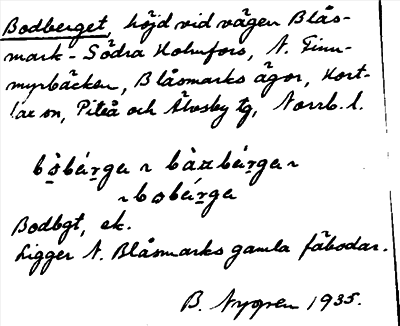 Bodberget, höjd vid vägen Blås-
mark - Södra Holmfors, N. Finn-
myrbäcken, Blåsmarks ägor, Hort-
lax sn, Piteå och Älvsby tg, Norrb. l.
Bodbgt, ek.
Ligger N. Blåsmarks gamla fäbodar.
B. Nygren 1935.